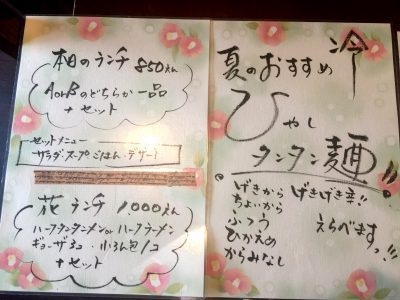 本日のランチ 850えん
AorBのどちらか一品
+セット
セットメニュー
サラダ・スープ ごはん・デザート
花ランチ 1,000えん
ハーフタンタンメンorハーフラーメン
ギョーザ3コ・小ろん包1コ
+セット
夏のおすすめ
冷
ひやし
タンタン麺!!
げきから げきげき辛!!
ちょいから
ふつう えらべますっ!!
ひかえめ
からみなし